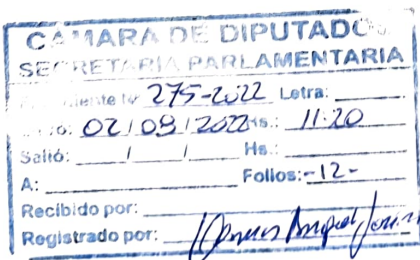 CAMARA DE DIPUTADOS
SECRETARIA PARLAMENTARIA
275-2022 Letra:
02/09/2022 Hs.: 11:20
Salió: / / Hs.:
A: Folios: -12-
Recibido por:
Registrado por: